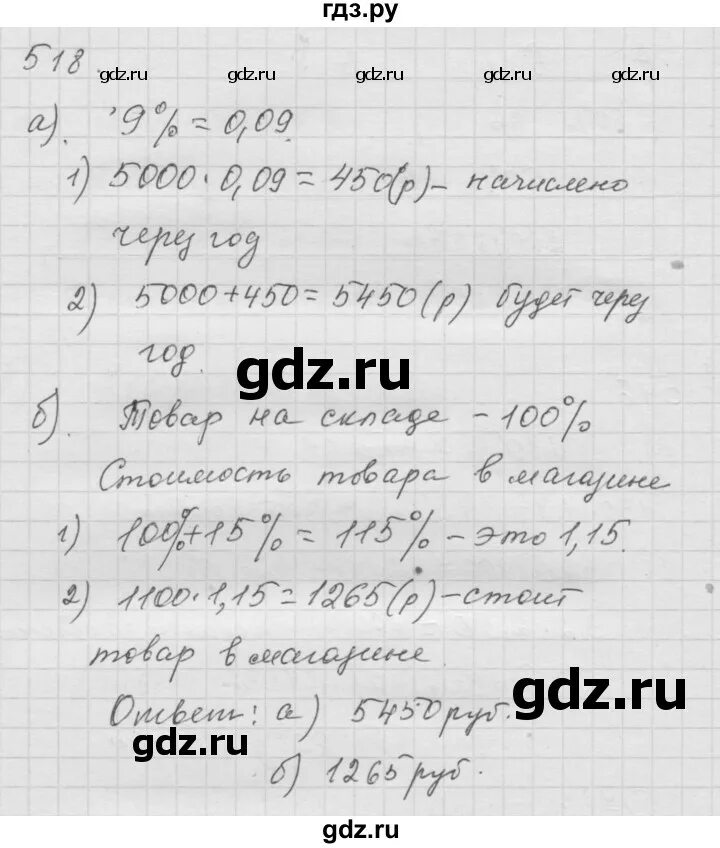 гдз.ру
518.
gdz.ru gdz.ru
а). 9% = 0,09.
gdz.ru gdz.ru
1) 5000 · 0,09 = 450(р) – начислено
через год
gdz.ru gdz.ru
2) 5000 + 450 = 5450 (р) будет через
год.
gdz.ru
gdz.ru
б). Товар на складе – 100%
gdz.ru
Стоимость товара в магазине
1) 100% + 15% = 115% – это 1,15.
gdz.ru gdz.ru
2) 1100 · 1,15 = 1265(р) – стоит
товар в магазине
gdz.ru
gdz.ru
Ответ: а) 5450 руб.
gdz.ru
б) 1265 руб.
gdz.ru
gdz.ru